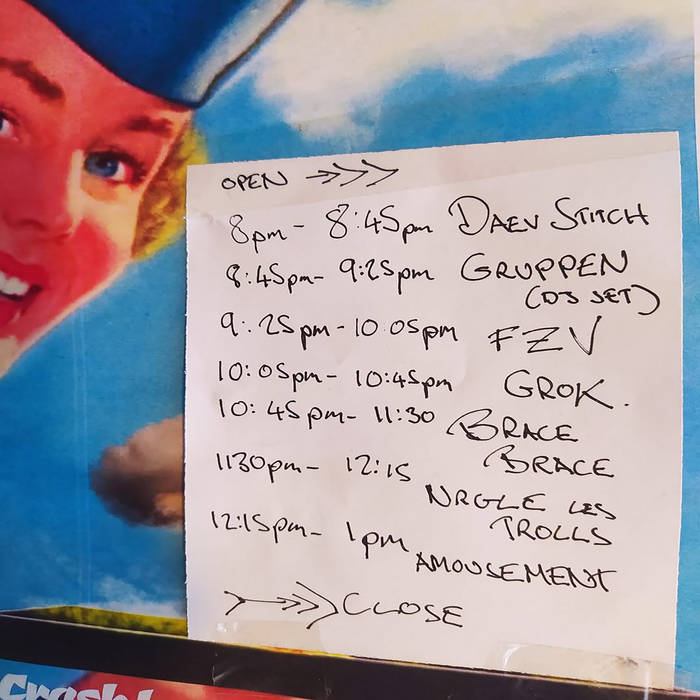 OPEN →>>>
8pm - 8:45pm DAEV STITCH
8:45pm- 9:25pm GRUPPEN
(DJ SET)
9:25pm-10:05pm FZV
10:05pm- 10:45pm GROK.
10:45pm- 11:30 BRACE
BRACE
1130pm- 12:15
NRGLE LES
TROLLS
12:15pm- 1pm
AMOUSEMENT
>→>>> CLOSE
Crash!